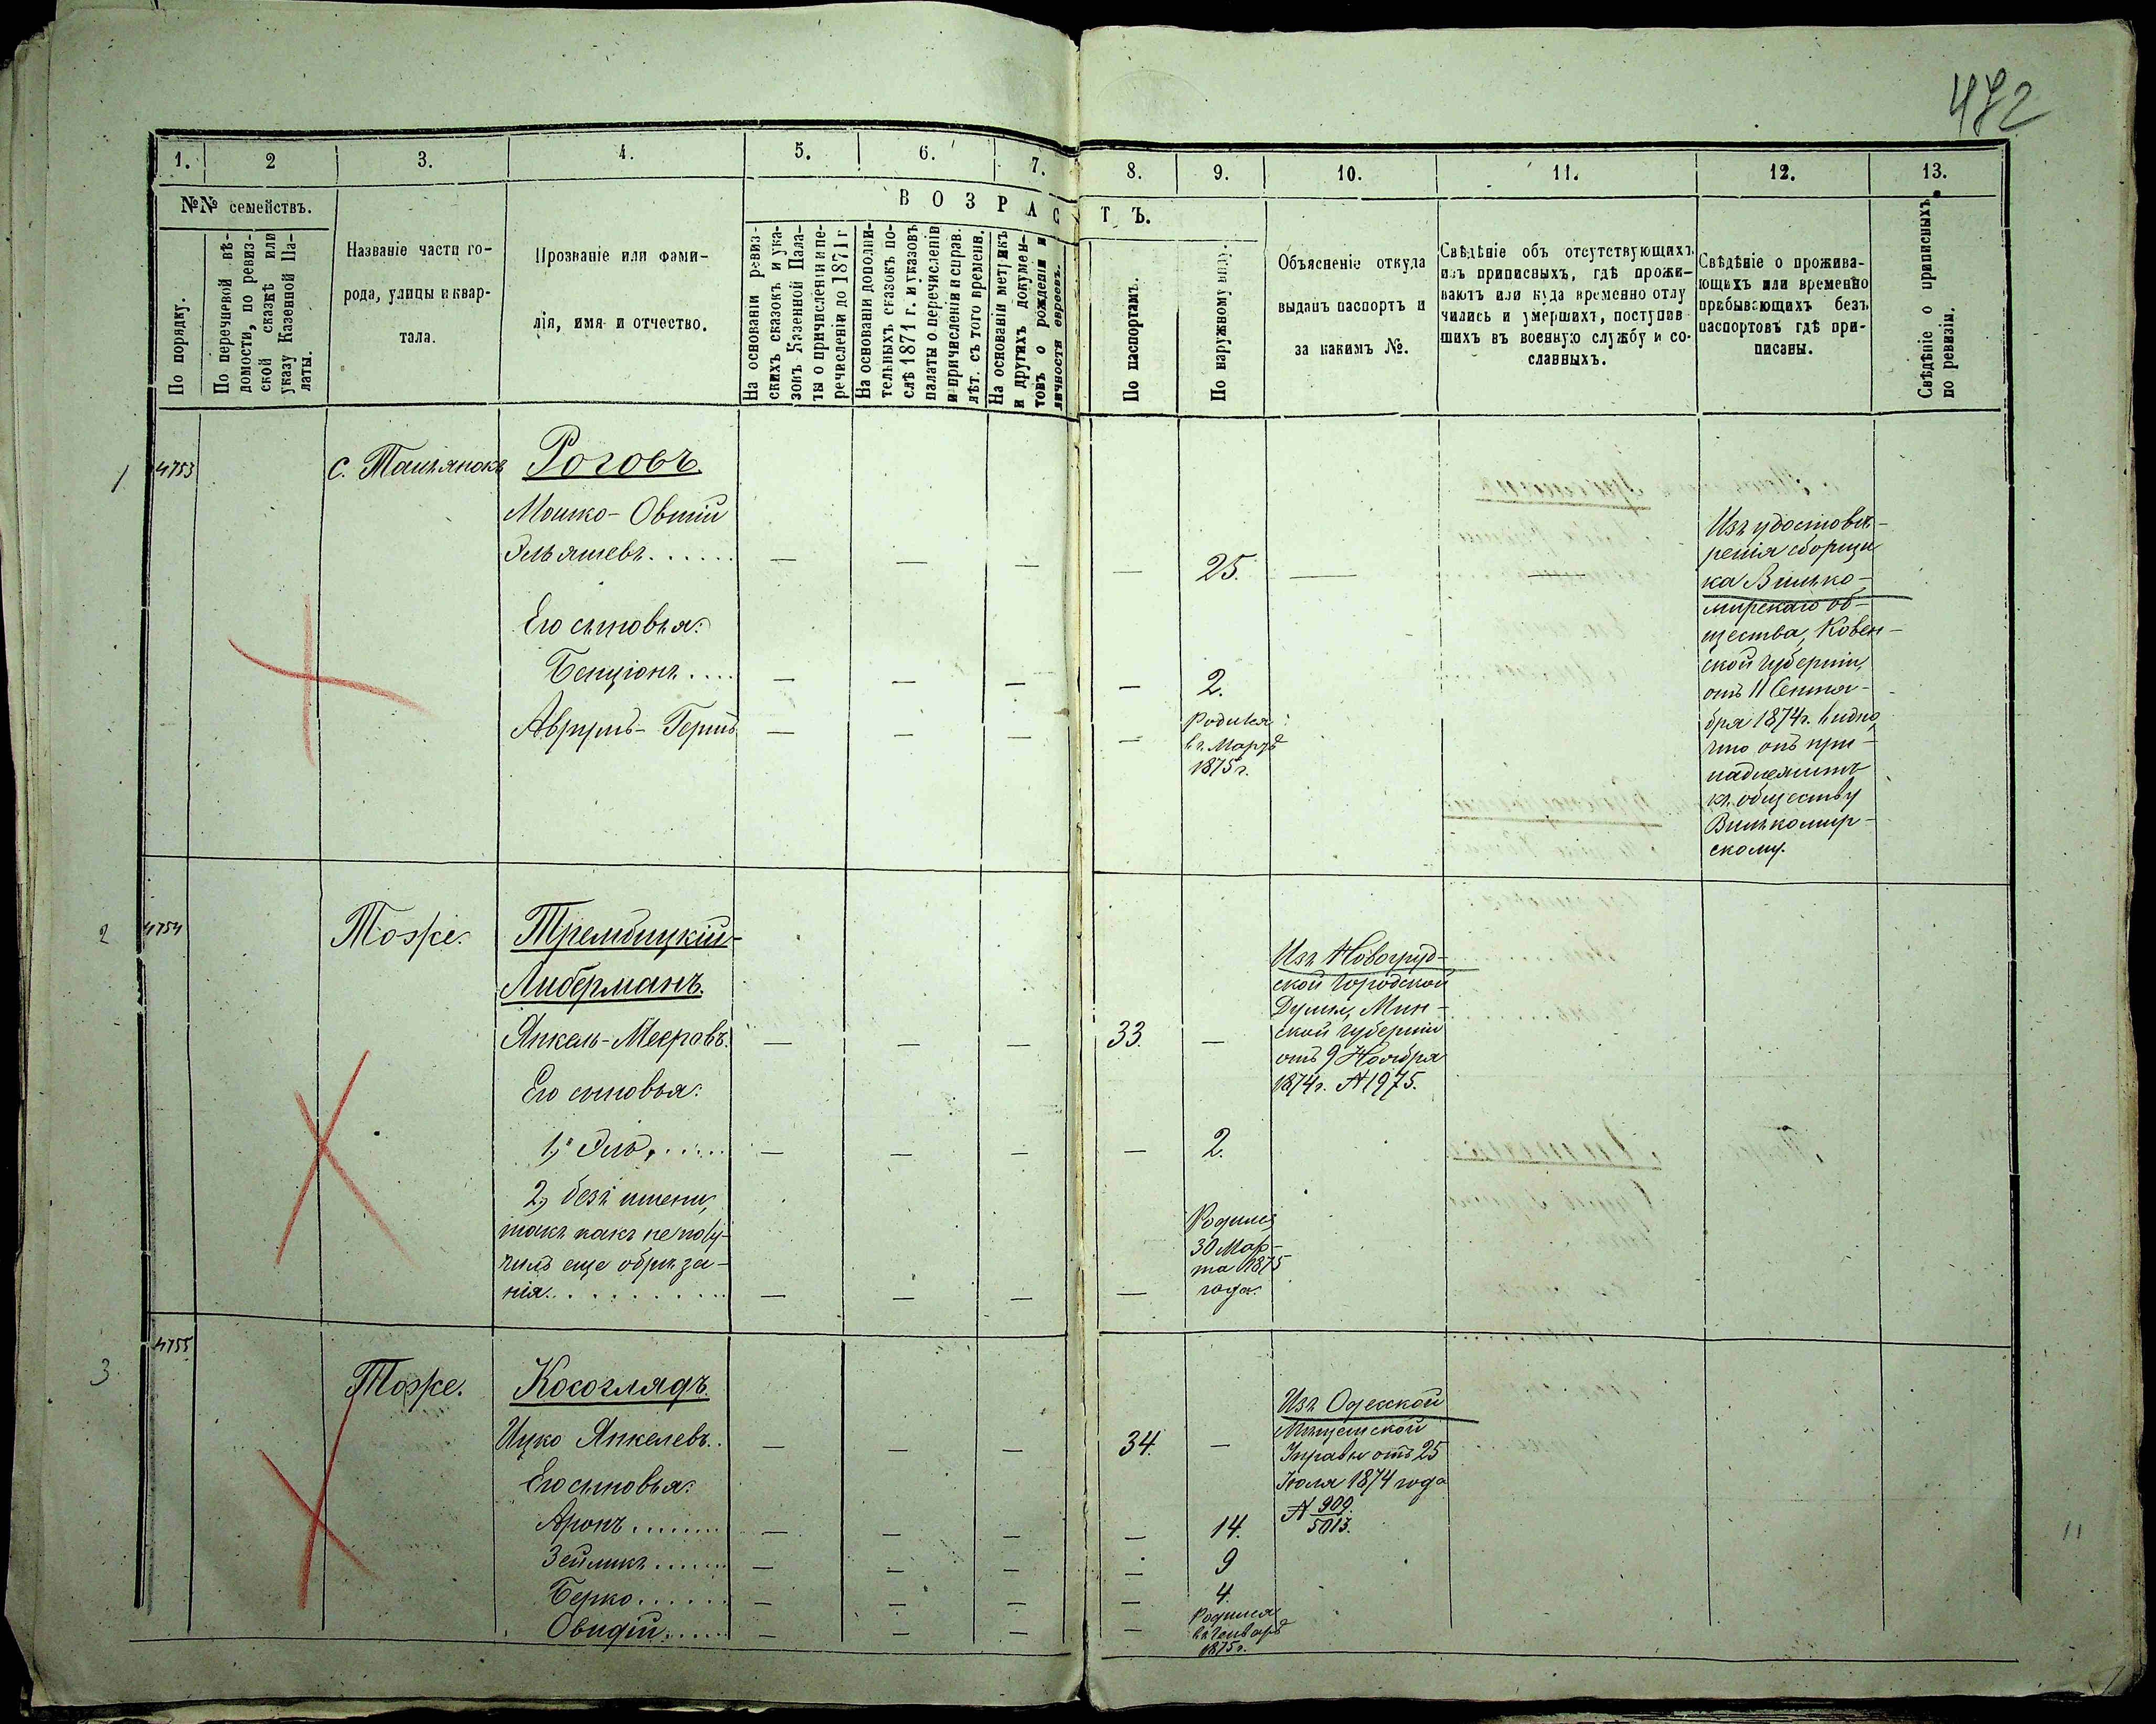 472
1. 2 3. 4. 5. 6. 7. 8. 9. 10. 11. 12. 13.
№№ семействъ.
ВОЗРАСТЪ.
По порядку.
По перечневой вѣ-
домости, по ревиз-
ской сказкѣ или
указу Казенной Па-
латы.
Названіе части го-
рода, улицы и квар-
тала.
Прозваніе или фами-
лія, имя и отчество.
На основаніи ревиз-
скихъ сказокъ и ука-
зовъ Казенной Пала-
ты о причисленіи и пе-
речисленіи до 1871 г
На основаніи дополни-
тельныхъ сказокъ по-
слѣ 1871 г. и указовъ
палаты о перечисленіи
и причисленіи и справ.
лѣт. съ того времени.
На основаніи метрикъ
и другихъ докумен-
товъ о рожденіи и
личности евреевъ.
По паспортамъ.
По наружному виду.
Объясненіе откуда
выданъ паспортъ и
за какимъ №.
Свѣдѣніе объ отсутствующихъ
изъ приписныхъ, гдѣ прожи-
ваютъ или куда временно отлу
чились и умершихъ, поступив
шихъ въ военную службу и со-
сланныхъ.
Свѣдѣніе о прожива-
ющихъ или временно
пребывающихъ безъ
паспортовъ гдѣ при-
писаны.
Свѣдѣніе о приписныхъ
по ревизіи.
1 4753 с. Тальянокъ Роговъ
Мошко-Овшій
Эльяшевъ . . . . . . — — — — 25. — —
Его сыновья:
Бенціонъ . . . . — — — — 2.
Аврумъ-Гершъ — — — —
Родился
въ Мартѣ
1875 г.
Изъ удостовѣ-
ренія сборщи
ка Вилько-
мирскаго об-
щества, Ковен-
ской губерніи,
отъ 11 Сентя-
бря 1874 г. видно,
что онъ при-
надлежитъ
къ обществу
Вилькомир-
скому.
2 4754 Тоже. Трембицкій-
Либерманъ.
Янкель-Мееровъ. — — — 33. —
Изъ Новогруд-
ской городской
Думы, Мин-
ской губерніи
отъ 9 Ноября
1874 г. № 1975.
Его сыновья:
1, Эль, . . . . . — — — — 2.
2, безъ имени,
такъ какъ не полу-
чилъ еще обрѣза-
нія. . . . . . . . . . — — — —
Родился
30 Мар-
та 1875
года.
3 4755 Тоже. Косоглядъ.
Ицко Янкелевъ. . — — — 34. —
Изъ Одесской
Мѣщанской
Управы отъ 25
Іюля 1874 года
№ 909.
5013.
Его сыновья:
Аронъ . . . . . . . — — — — 14.
Зейликъ . . . . . . — — — — 9
Берко . . . . . . — — — — 4.
Овидій . . . . . — — — —
Родился
въ Генварѣ
1875 г.
11